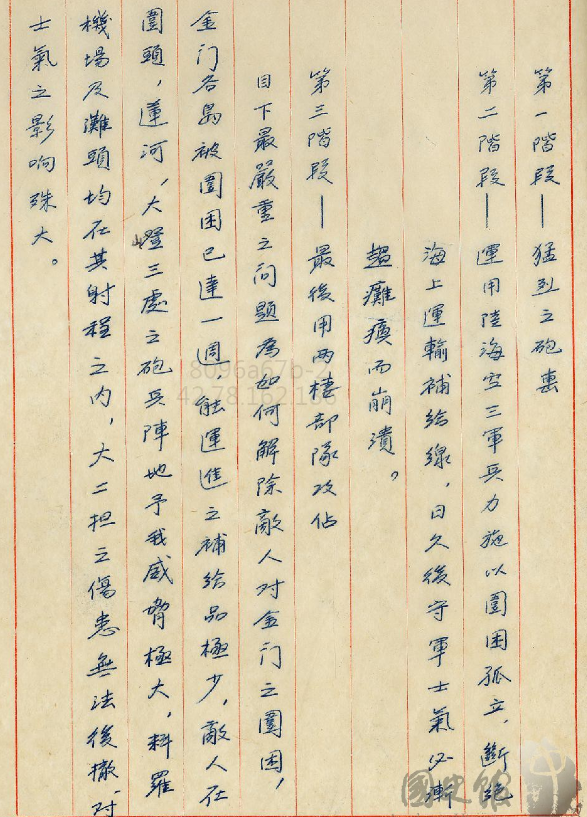 第一階段——猛烈之砲轰
第二階段——運用陸海空三軍兵力施以圍困孤立，斷絕
海上運輸補給線，日久後守軍士氣必漸
趨癱瘓而崩潰。
第三階段——最後用兩棲部隊攻佔
目下最嚴重之问題為如何解除敵人对金门之圍困，
金门各島被圍困已達一週，能運進之補給品極少，敵人在
圍頭，蓮河，大嶝三處之砲兵陣地予我威脅極大，料羅
機場及灘頭均在其射程之內，大二担之傷患無法後撤，对
士氣之影响殊大。
8096a67b-2
42.78.162.166
國史館